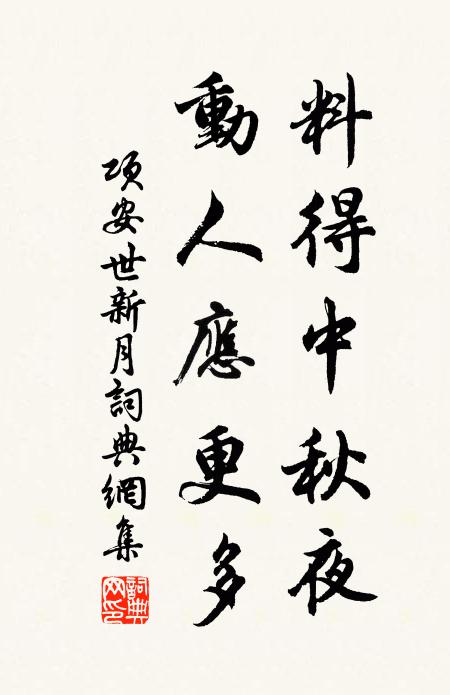 料得中秋夜
動人應更多
項安世新月詞典網集
詞典网印